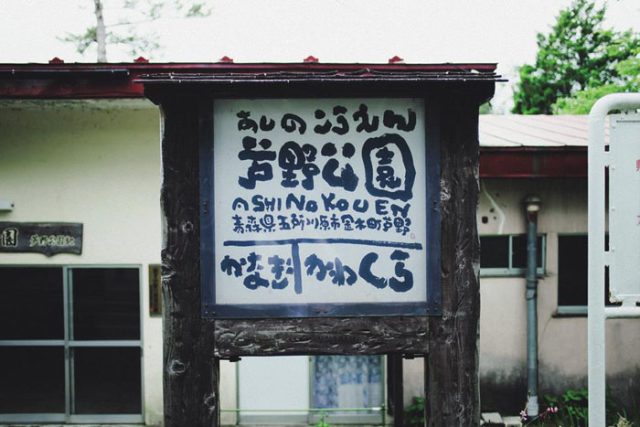 あしのこうえん
芦野公園
ASHINOKOUEN
青森県五所川原市金木町芦野
かなぎ
かわくら
園
芦野公園駅